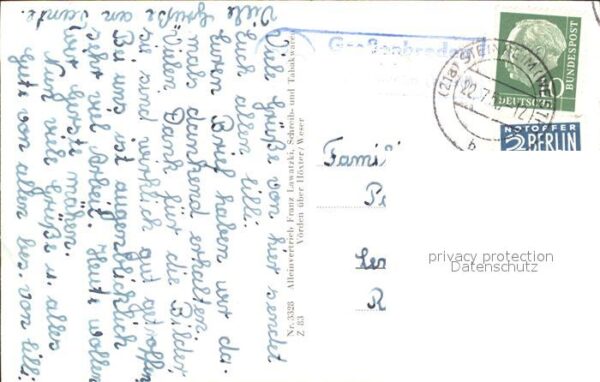 Viele Grüße von hier sendet
Euch allen Lilli.
Euren Brief haben wir da-
mals dankend erhalten.
Vielen Dank für die Bilder
sie sind wirklich gut getroffen
Bei uns ist augenblicklich
sehr viel Arbeit. Heute wollen
wir Gerste mähen.
Nun viele Grüße u. alles
Gute von allen bes. von Lilli.
Viele
Grüße an
Tante.
Nr. 3328 Alleinvertrieb Franz Lawatzki, Schreib- und Tabakwaren
Z 83 Vörden über Höxter/Weser
Großenbreden
(21a) STEINHEIM (WESTF
22.7.
b
DEUTSCHE
BUNDESPOST
NOTOPFER
2 BERLIN
Fami
privacy protection
Datenschutz